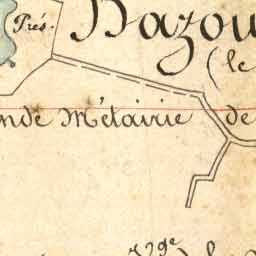 Prés.
Bazou
(le
nde Métairie de
Vge